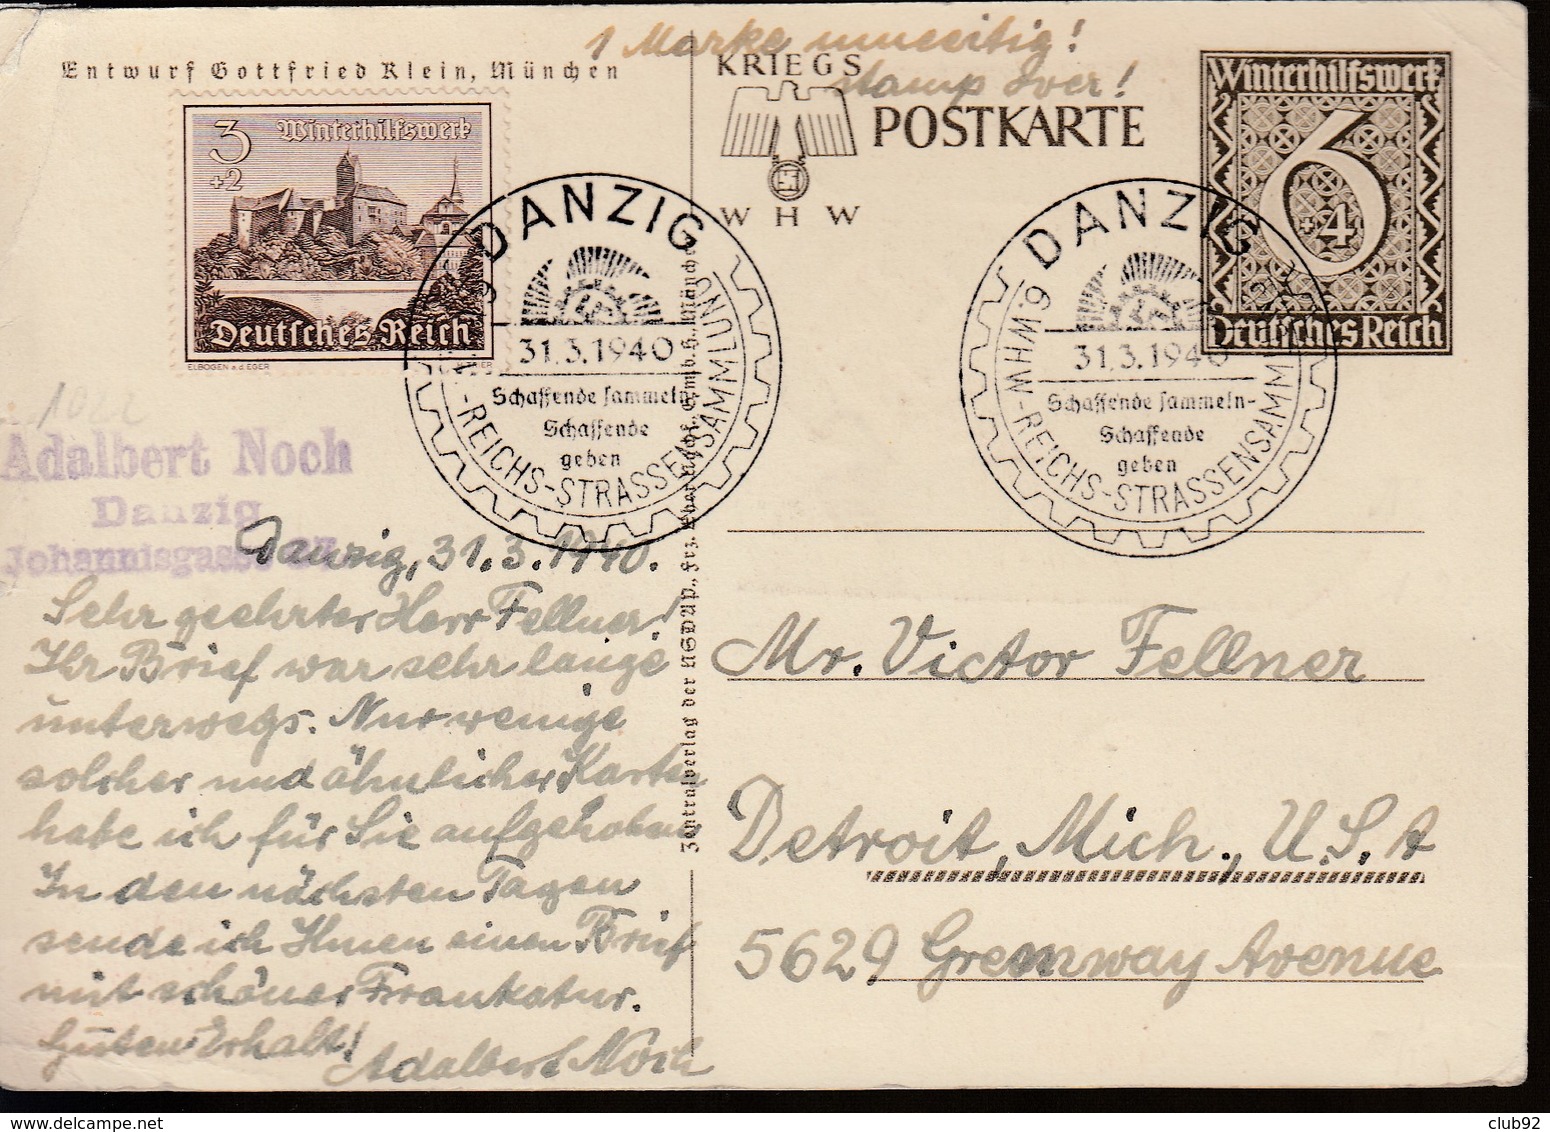 1 Marke umseitig!
stamp over!
Entwurf Gottfried Klein, München
KRIEGS
POSTKARTE
W H W
Winterhilfswerk
6
+4
Deutsches Reich
3
+2
Winterhilfswerk
Deutsches Reich
ELBOGEN a.d. EGER
DANZIG
31.3.1940
Schaffende sammeln-
Schaffende
geben
-REICHS-STRASSENSAMMLUNG
DANZIG
31.3.1940
Schaffende sammeln-
Schaffende
geben
6WHW-REICHS-STRASSENSAMML
Zentralverlag der NSDAP., Frz. Eher Nachf. G.m.b.H., München
1022
Adalbert Noch
Danzig
Johannisgasse
Danzig, 31.3.1940.
Sehr geehrter Herr Fellner!
Ihr Brief war sehr lange
unterwegs. Nur wenige
solcher und ähnlicher Karten
habe ich für Sie aufgehoben
In den nächsten Tagen
sende ich Ihnen einen Brief
mit schöner Frankatur.
Guten Erhalt!
Adalbert Noch
Mr. Victor Fellner
Detroit, Mich., U.S.A
5629 Grennway Avenue
club92